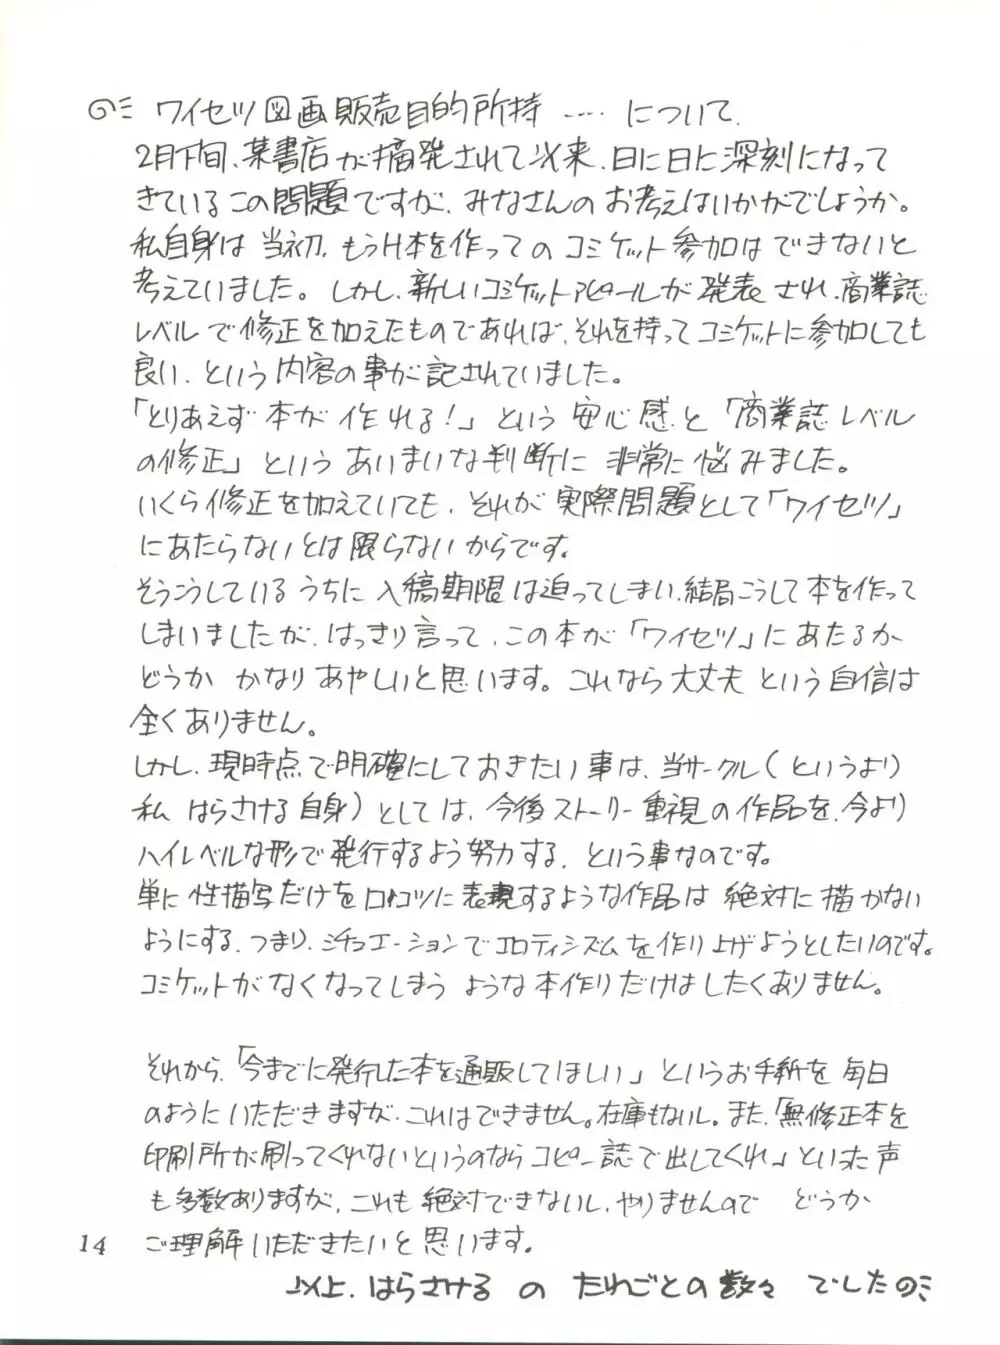 ワイセツ図画販売目的所持……について.
2月下旬、某書店が摘発されて以来、日に日に深刻になって
きているこの問題ですが、みなさんのお考えはいかがでしょうか。
私自身は当初、もうH本を作ってのコミケット参加はできないと
考えていました。しかし、新しいコミケットアピールが発表され、商業誌
レベルで修正を加えたものであれば、それを持ってコミケットに参加しても
良い、という内容の事が記されていました。
「とりあえず本が作れる!」という安心感と「商業誌レベル
の修正」というあいまいな判断に非常に悩みました。
いくら修正を加えていても、それが実際問題として「ワイセツ」
にあたらないとは限らないからです。
そうこうしているうちに入稿期限は迫ってしまい、結局こうして本を作って
しまいましたが、はっきり言って、この本が「ワイセツ」にあたるか
どうか かなりあやしいと思います。これなら大丈夫という自信は
全くありません。
しかし、現時点で明確にしておきたい事は、当サークル(というより
私 はらさける自身)としては、今後ストーリー重視の作品を、今より
ハイレベルな形で発行するよう努力する、という事なのです。
単に性描写だけをロコツに表現するような作品は絶対に描かない
ようにする、つまり、シチュエーションでエロティシズムを作り上げようとしたいのです。
コミケットがなくなってしまうような本作りだけはしたくありません。
それから、「今までに発行した本を通販してほしい」というお手紙を毎日
のようにいただきますが、これはできません。在庫もないし。また、「無修正本を
印刷所が刷ってくれないというのならコピー誌で出してくれ」といった声
も多数ありますが、これも絶対できないし、やりませんので どうか
ご理解いただきたいと思います。
14
以上、はらさけるの たわごとの数々 でした